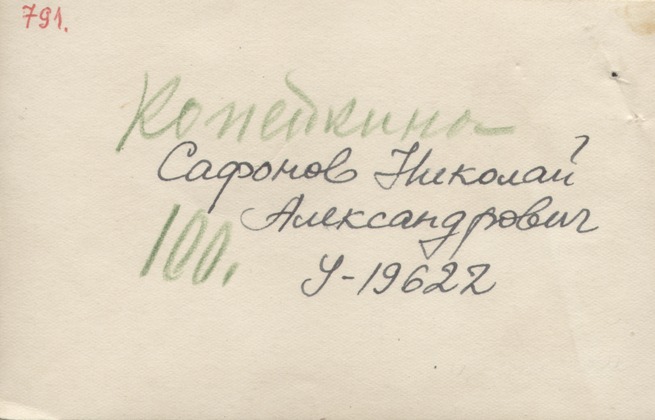 791.
Копейкина
Сафонов Николай
Александрович
100.
У-19622